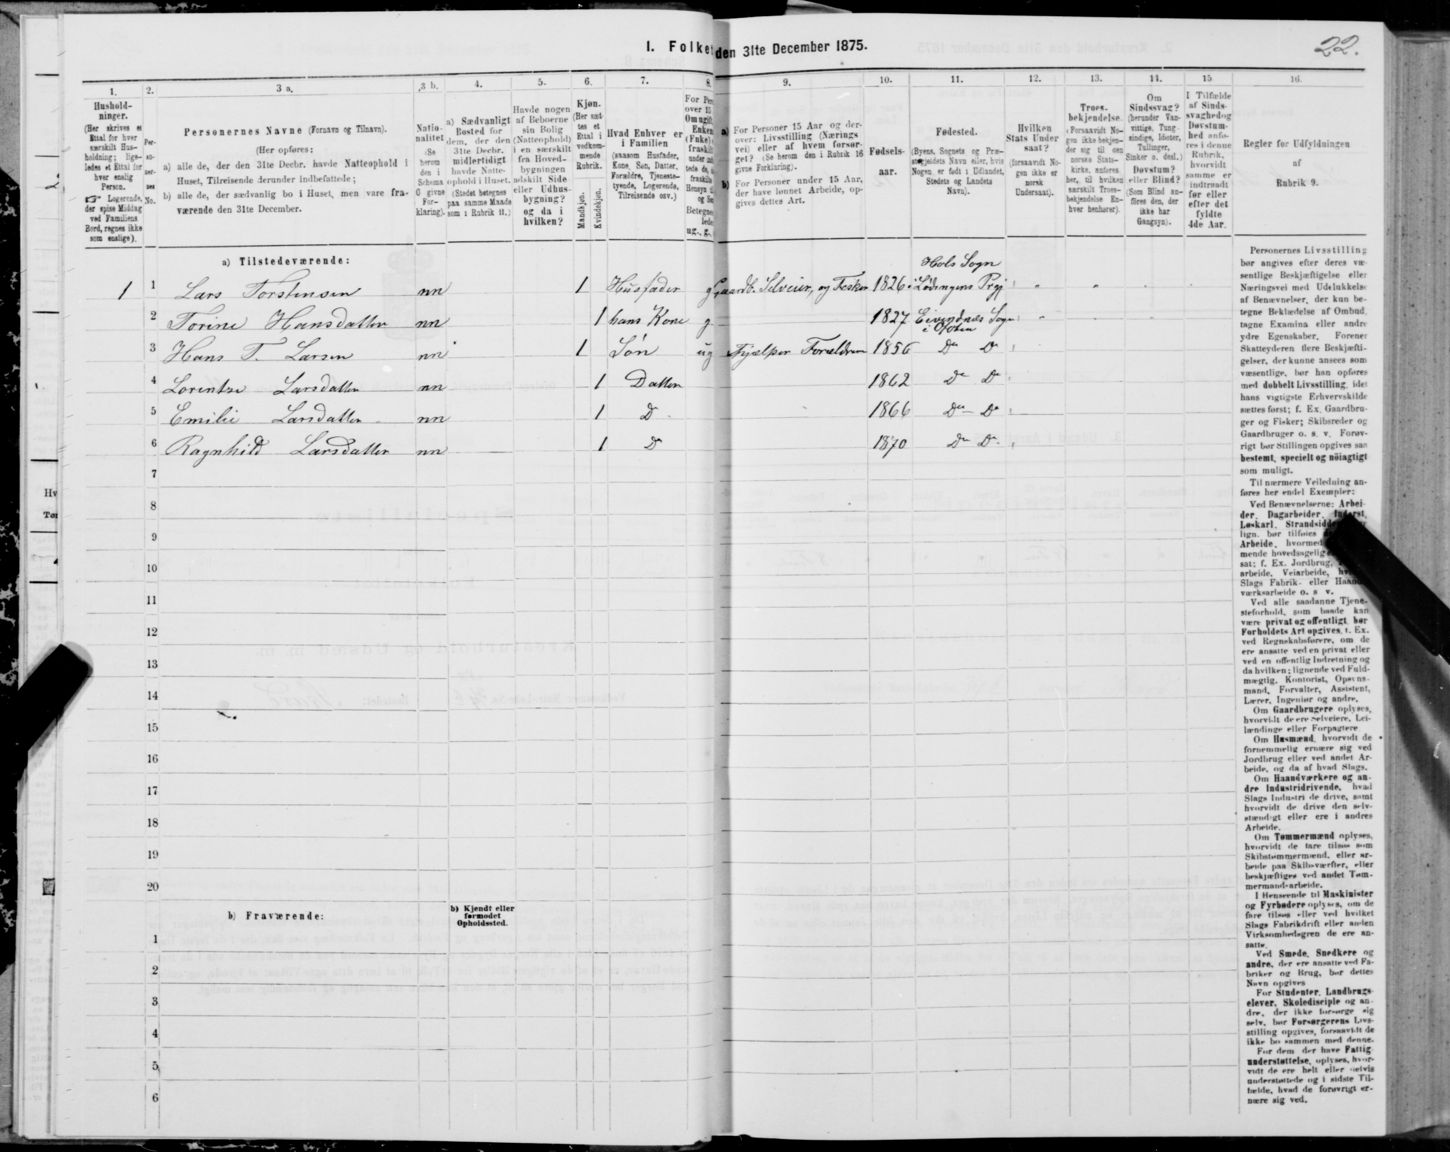 I. Folket den 31te December 1875.
22.
1.
2.
3 a.
3 b.
4.
5.
6.
7.
8.
9.
10.
11.
12.
13.
14.
15
16.
Hushold-
ninger.
(Her skrives et
Ettal for hver
særskilt Hus-
holdning; lige-
ledes et Ettal for
hver enslig
Person.
Logerende,
der spise Middag
ved Familiens
Bord, regnes ikke
som enslige).
Personernes Navne (Fornavn og Tilnavn).
(Her opføres:
a) alle de, der den 31te Decbr. havde Natteophold i
Huset, Tilreisende derunder indbefattede;
b) alle de, der sædvanlig bo i Huset, men vare fra-
værende den 31te December.
Natio-
nalitet
(Se
herom
den i
Schema
O givne
For-
klaring).
a) Sædvanligt
Bosted for
dem, der den
31te Decbr.
midlertidigt
havde Natte-
ophold i Huset.
(Stedet betegnes
paa samme Maade
som i Rubrik 11.)
Havde nogen
af Beboerne
sin Bolig
(Natteophold)
i en særskilt
fra Hoved-
bygningen
adskilt Side
eller Udhus-
bygning?
og da i
hvilken?
Kjøn.
(Her sæt-
tes et
Ettal i
vedkom-
mende
Rubrik.
Mandkjøn.
Kvindekjøn.
Hvad Enhver er
i Familien
(saasom Husfader,
Kone, Søn, Datter,
Forældre, Tjeneste-
tyende, Logerende,
Tilreisende osv.)
a) For Personer 15 Aar og der-
over: Livsstilling (Nærings
vei) eller af hvem forsør-
get? (Se herom den i Rubrik 16
givne Forklaring).
b) For Personer under 15 Aar,
der have lønnet Arbeide, op-
gives dettes Art.
Fødsels-
aar.
Fødested.
(Byens, Sognets og Præ-
stegjeldets Navn eller, hvis
Nogen er født i Udlandet,
Stedets og Landets
Navn).
Hvilken
Stats Under
saat?
(forsaavidt No-
gen ikke er
norsk
Undersaat).
Troes-
bekjendelse.
(Forsaavidt No-
gen ikke bekjen-
der sig til den
norske Stats-
kirke, anføres
her, til hvilken
særskilt Troes-
bekjendelse En-
hver henhører).
Om
Sindssvag?
(herunder Van-
vittige, Tung-
sindige, Idioter,
Tullinger,
Sinker o. desl.)
Døvstum?
eller Blind?
(Som Blind an-
føres den, der
ikke har
Gangsyn).
I Tilfælde
af Sinds-
svaghed og
Døvstum-
hed anfø-
res i denne
Rubrik,
hvorvidt
samme er
indtraadt
før eller
efter det
fyldte
4de Aar.
Regler for Udfyldningen
af
Rubrik 9.
a) Tilstedeværende:
Hols Sogn
1 1 Lars Torstensen nn 1 Husfader g Gaardb. Selveier, og Fisker 1826 i Lødingens Prgj
2 Torine Hansdatter nn 1 hans Kone g 1827 Eivindnæs Sogn
i Ofoten
3 Hans T. Larsen nn 1 Søn ug Hjælper Forældrene 1856 Do Do
4 Lorentse Larsdatter nn 1 Datter 1862 Do Do
5 Emilie Larsdatter nn 1 D 1866 Do Do
6 Ragnhild Larsdatter nn 1 D 1870 Do Do
7
8
9
10
11
12
13
14
15
16
17
18
19
20
b) Fraværende:
b) Kjendt eller
formodet
Opholdssted.
1
2
3
4
5
6
Personernes Livsstilling
bør angives efter deres væ-
sentlige Beskjæftigelse eller
Næringsvei med Udelukkelse
af Benævnelser, der kun be-
tegne Beklædelse af Ombud,
tagne Examina eller andre
ydre Egenskaber. Forener
Skatteyderen flere Beskjæfti-
gelser, der kunne ansees som
væsentlige, bør han opføres
med dobbelt Livsstilling, idet
hans vigtigste Erhvervskilde
sættes først; f. Ex. Gaardbru-
ger og Fisker; Skibsreder og
Gaardbruger o. s. v. Forøv-
rigt bør Stillingen opgives saa
bestemt, specielt og nöiagtigt
som muligt.
Til nærmere Veiledning an-
føres her endel Exempler:
Ved Benævnelserne: Arbei-
der, Dagarbeider, Inderst,
Løskarl, Strandsidder
lign. bør tilføies
Arbeide, hvormed
mende hovedsagelig
sat; f. Ex. Jordbrug,
arbeide, Veiarbeide,
Slags Fabrik- eller Haand-
værksarbeide o. s v.
Ved alle saadanne Tjene-
steforhold, som baade kan
være privat og offentligt, bør
Forholdets Art opgives, f. Ex.
ved Regnskabsførere, om de
ere ansatte ved en privat eller
ved en offentlig Indretning og
da hvilken; lignende ved Fuld-
mægtig, Kontorist, Opsyns-
mand, Forvalter, Assistent,
Lærer, Ingeniør og andre.
Om Gaardbrugere oplyses,
hvorvidt de ere Selveiere, Lei-
lændinge eller Forpagtere
Om Husmænd, hvorvidt de
fornemmelig ernære sig ved
Jordbrug eller ved andet Ar-
beide, og da af hvad Slags.
Om Haandværkere og an-
dre Industridrivende, hvad
Slags Industri de drive, samt
hvorvidt de drive den selv-
stændigt eller ere i andres
Arbeide.
Om Tømmermænd oplyses,
hvorvidt de fare tilsøs som
Skibstømmermænd, eller ar-
beide paa Skibsværfter, eller
beskjæftiges ved andet Tøm-
mermandsarbeide.
I Henseende til Maskinister
og Fyrbødere oplyses, om de
fare tilsøs eller ved hvilket
Slags Fabrikdrift eller anden
Virksomhedsgren de ere an-
satte.
Ved Smede, Snedkere og
andre, der ere ansatte ved Fa-
briker og Brug, bør dettes
Navn opgives
For Studenter, Landbrugs-
elever, Skoledisciple og an-
dre, der ikke forsørge sig
selv, bør Forsørgerens Livs-
stilling opgives, forsaavidt de
ikke bo sammen med denne.
For dem, der have Fattig-
understøttelse, oplyses, hvor-
vidt de ere helt eller delvis
understøttede og i sidste Til-
fælde, hvad de forøvrigt er-
nære sig ved.